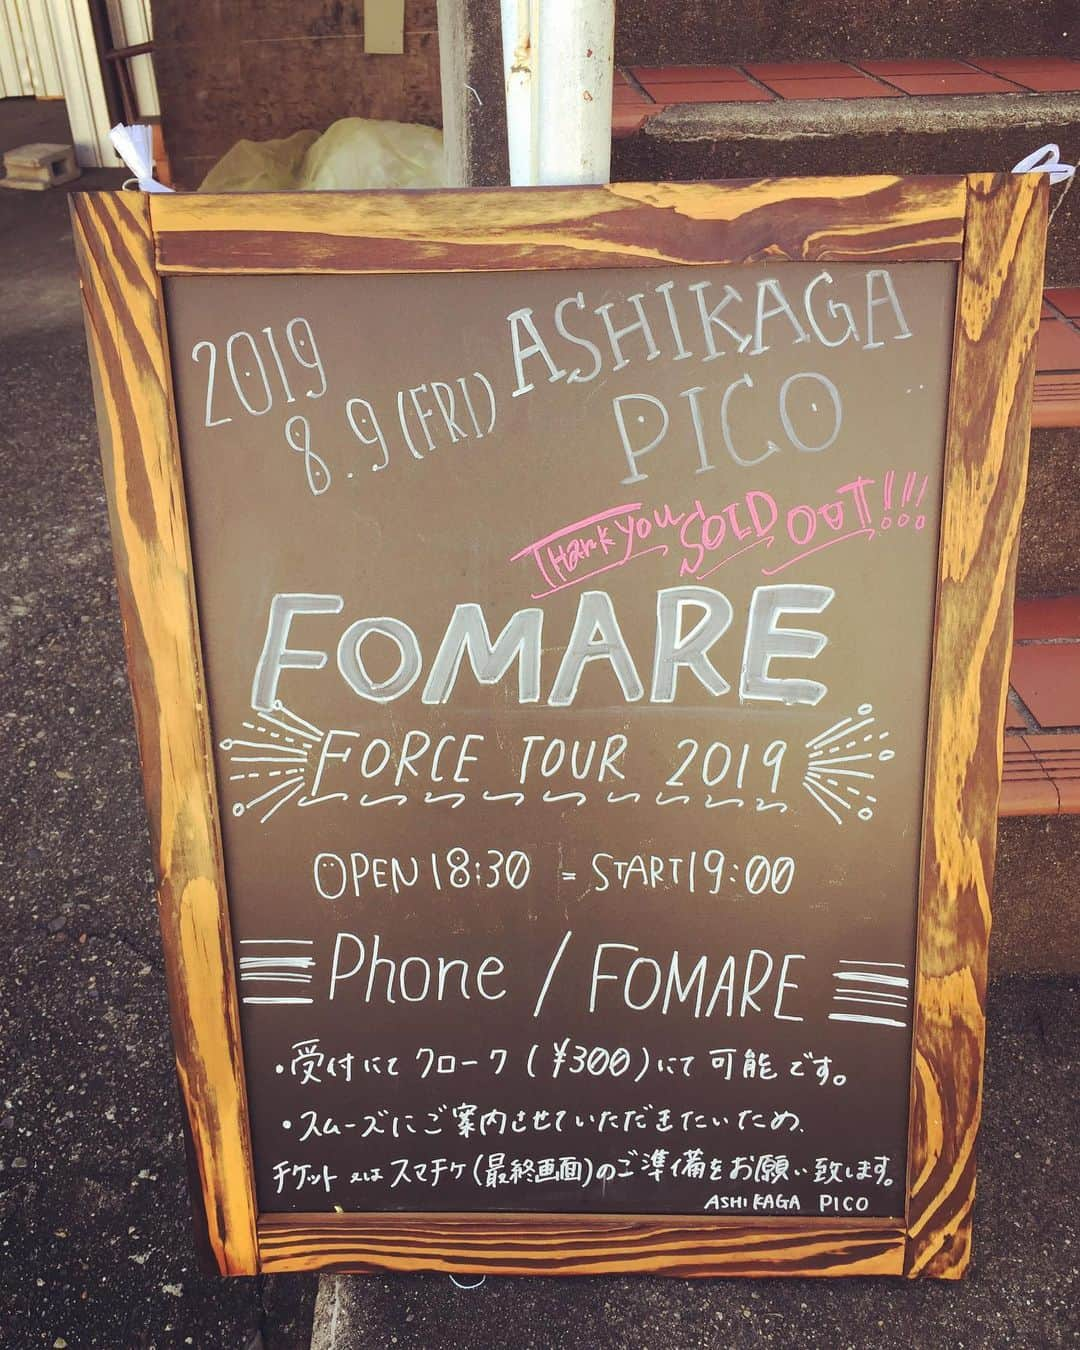 2019
8.9(FRI)
ASHIKAGA
PICO
Thank you SOLD OUT!!!
FOMARE
FORCE TOUR 2019
OPEN18:30 = START19:00
Phone / FOMARE
・受付にて クローク(¥300)にて可能です。
・スムーズにご案内させていただきたいため、
チケット 又は スマチケ(最終画面)のご準備をお願い致します。
ASHIKAGA PICO